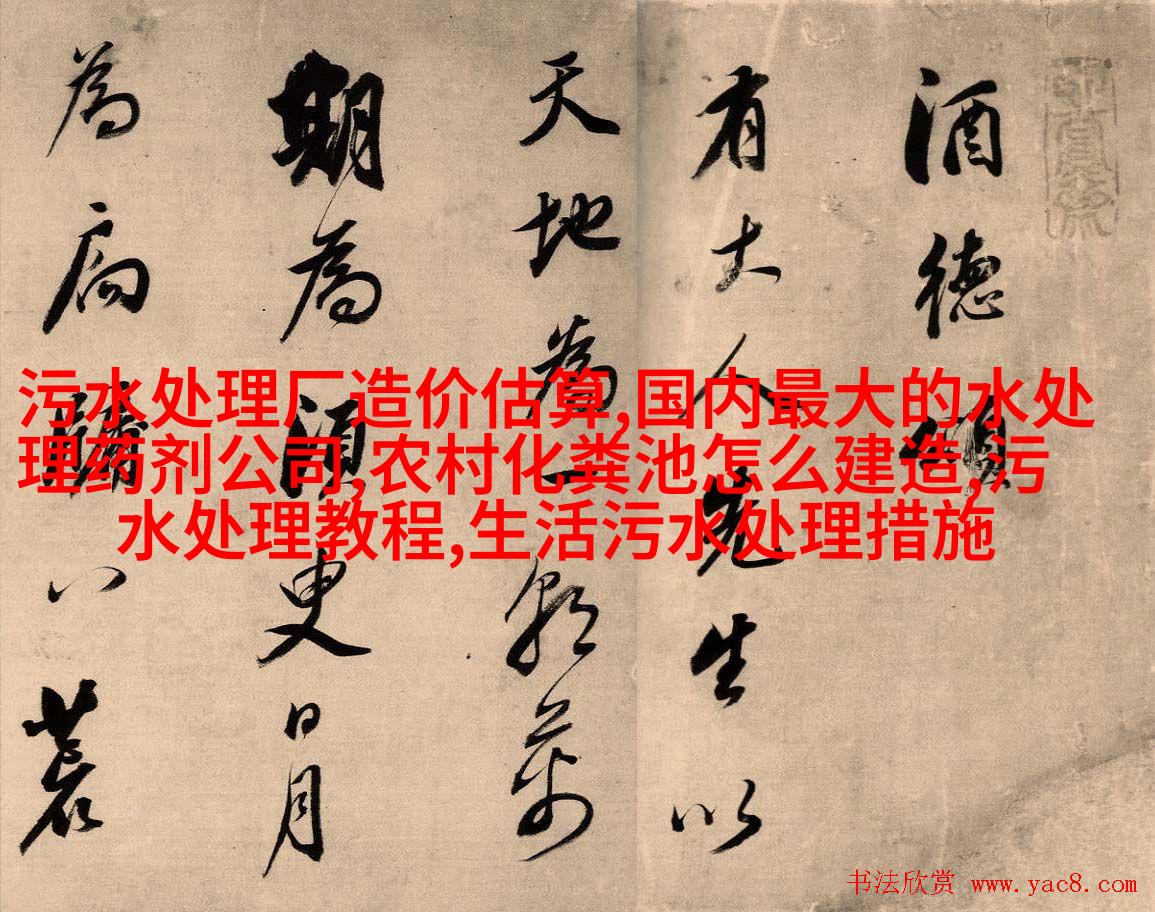 酒德頌
有大人先生以
天地為一朝萬
期為須臾日月
為扃牖八荒
污水处理厂造价估算,国内最大的水处
理药剂公司,农村化粪池怎么建造,污
水处理教程,生活污水处理措施
书法欣赏 www.yac8.com